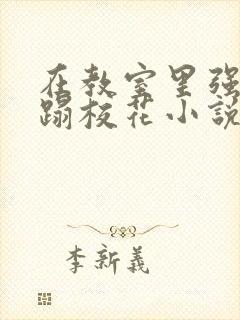 在教室里强
蹋校花小説
李新義